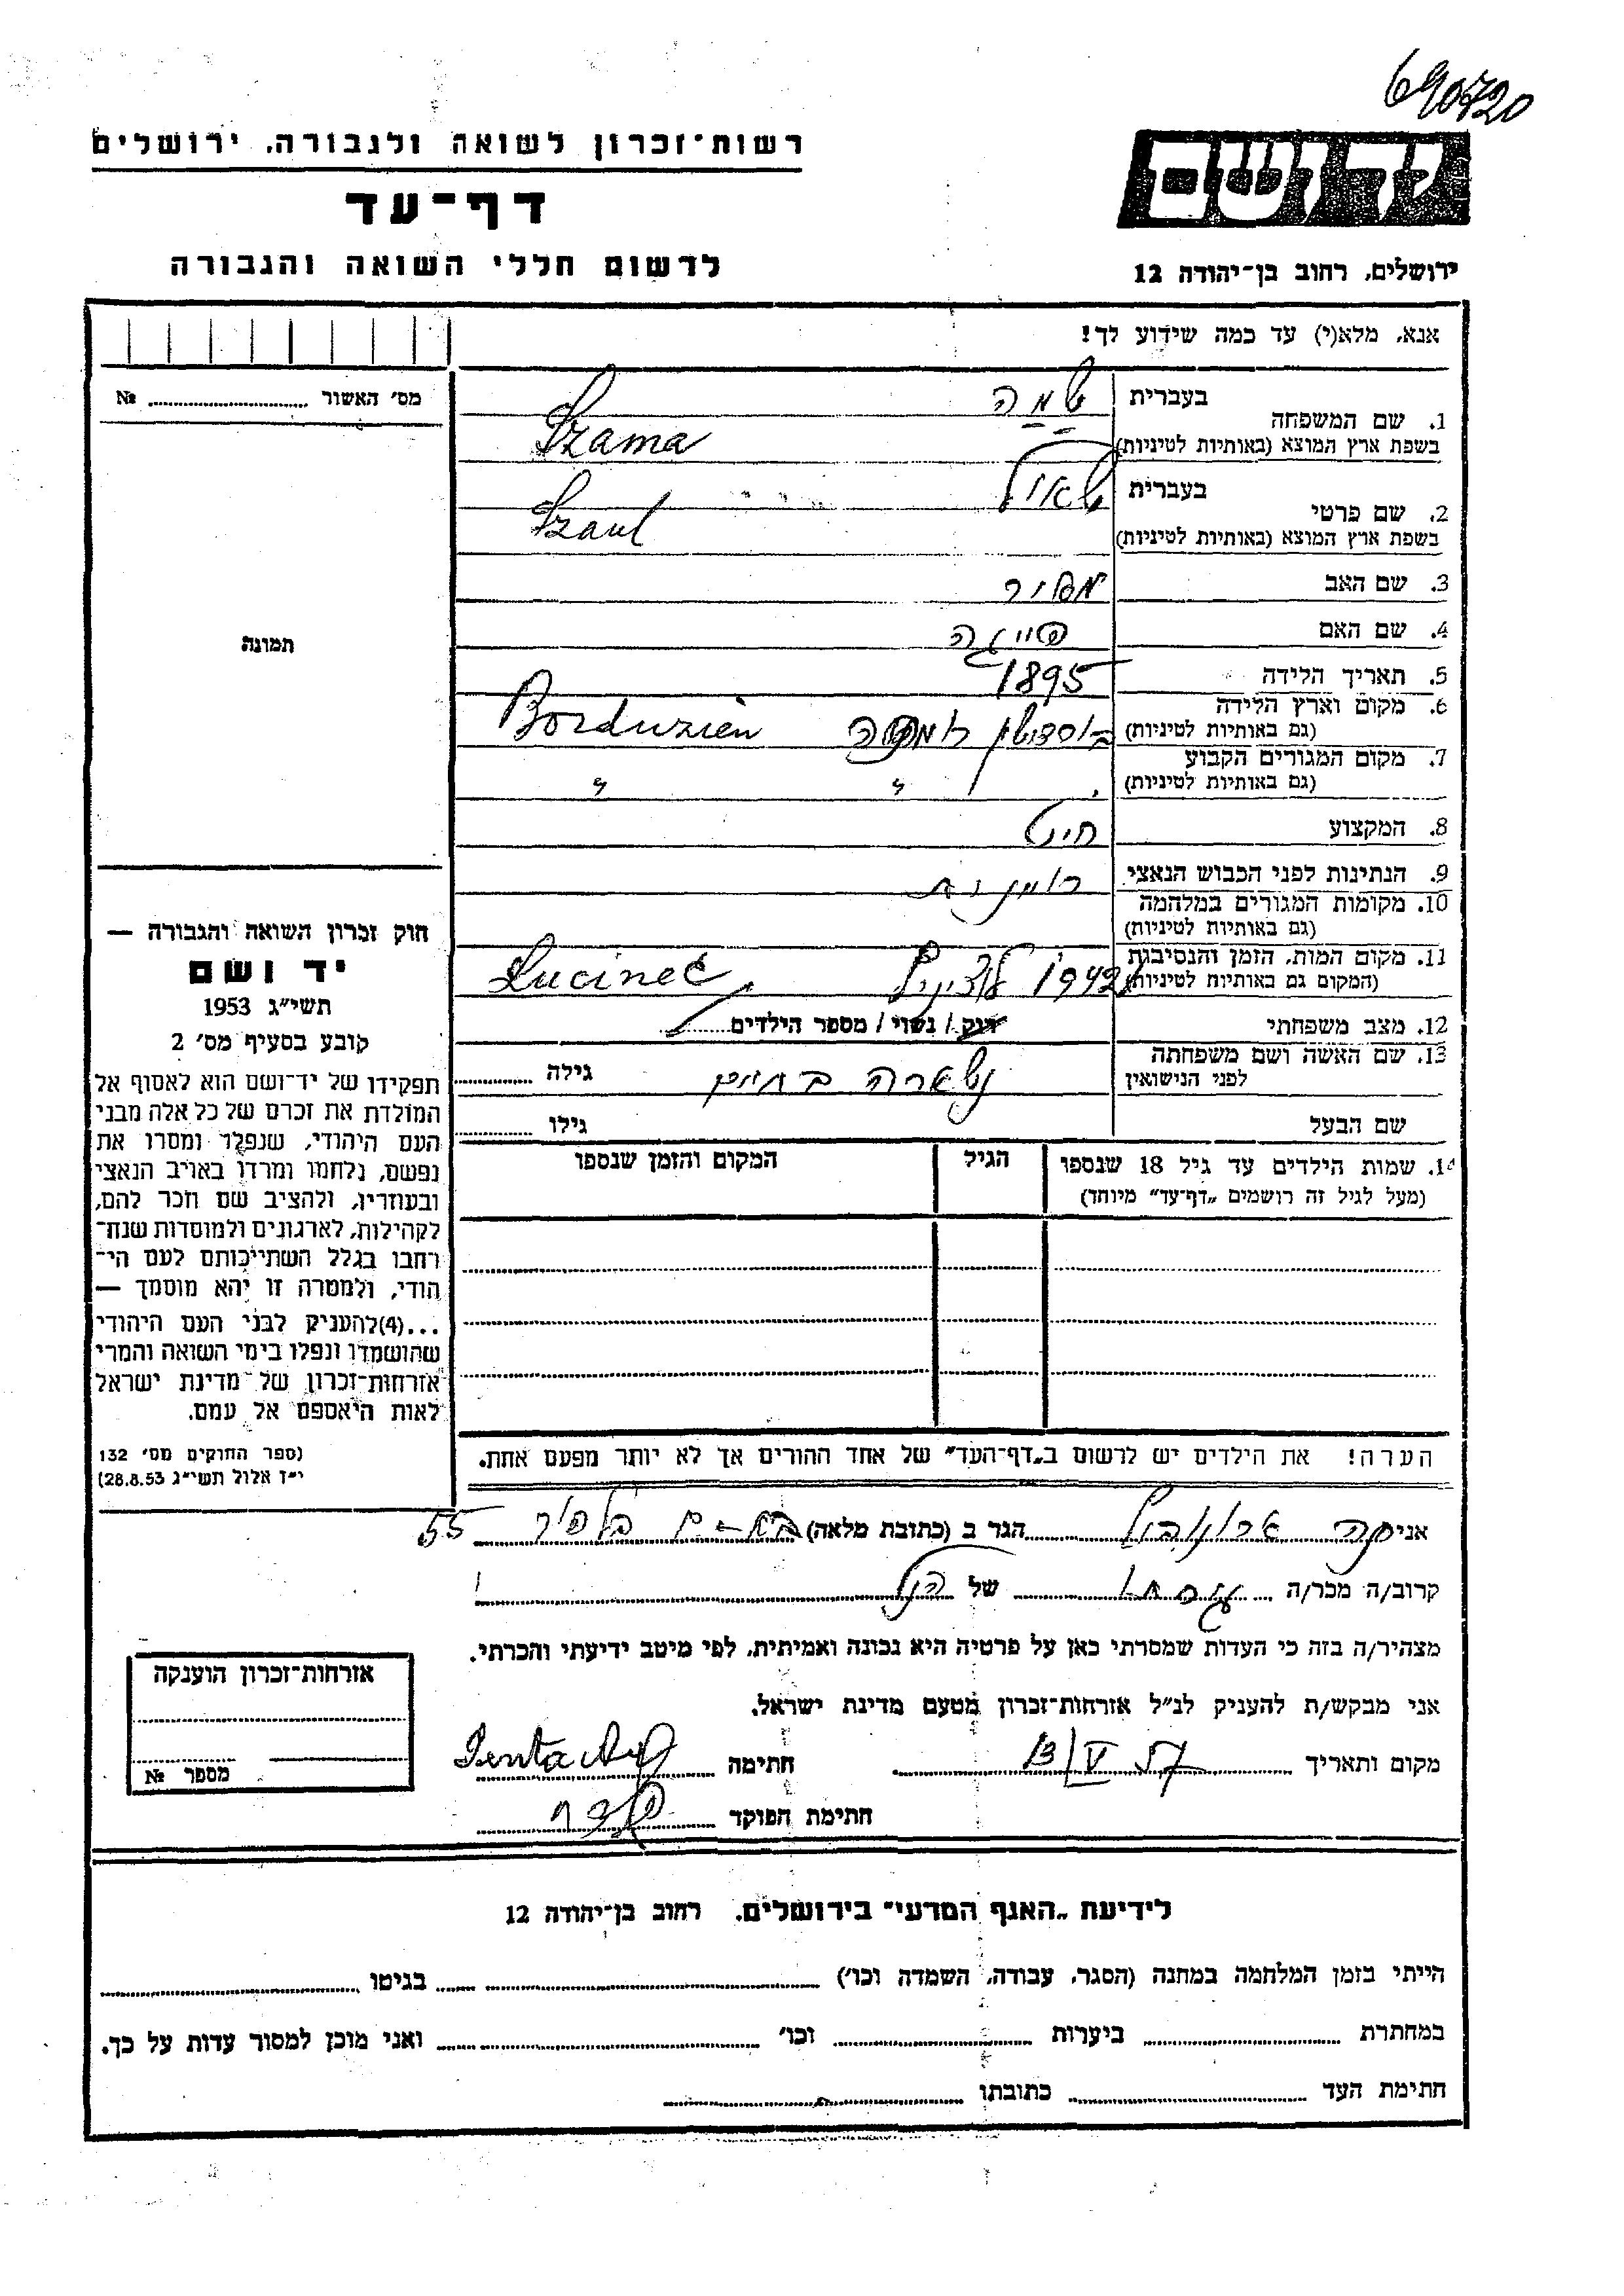 690720
רשות־זכרון לשואה ולגבורה, ירושלים
יד ושם
דף־עד
לרשום חללי השואה והגבורה
ירושלים, רחוב בן־יהודה 12
אנא, מלא(י) עד כמה שידוע לך!
מס׳ האשור № 
1. שם המשפחה
בעברית שמה
בשפת ארץ המוצא (באותיות לטיניות) Szama
2. שם פרטי
בעברית שאול
בשפת ארץ המוצא (באותיות לטיניות) Szaul
3. שם האב מאיר
4. שם האם פייגה
5. תאריך הלידה 1895
6. מקום וארץ הלידה
(גם באותיות לטיניות) Borduzien
7. מקום המגורים הקבוע
(גם באותיות לטיניות) " "
8. המקצוע חייט
9. הנתינות לפני הכבוש הנאצי רומנית
10. מקומות המגורים במלחמה
(גם באותיות לטיניות)
11. מקום המות, הזמן והנסיבות
(המקום גם באותיות לטיניות) 1942 לוצינץ Lucineć
12. מצב משפחתי רווק / נשוי / מספר הילדים
13. שם האשה ושם משפחתה
לפני הנישואין גילה
שם הבעל גילו
14. שמות הילדים עד גיל 18 שנספו הגיל המקום והזמן שנספו
(מעל לגיל זה רושמים „דף־עד״ מיוחד)
הערה! את הילדים יש לרשום ב„דף־העד״ של אחד ההורים אך לא יותר מפעם אחת.
תמונה
חוק זכרון השואה והגבורה —
יד ושם
תשי״ג 1953
קובע בסעיף מס׳ 2
תפקידו של יד־ושם הוא לאסוף אל
המולדת את זכרם של כל אלה מבני
העם היהודי, שנפלו ומסרו את
נפשם, נלחמו ומרדו באויב הנאצי
ובעוזריו, ולהציב שם וזכר להם,
לקהילות, לארגונים ולמוסדות שנח־
רבו בגלל השתייכותם לעם הי־
הודי, ולמטרה זו יהא מוסמך —
...(4)להעניק לבני העם היהודי
שהושמדו ונפלו בימי השואה והמרי
אזרחות־זכרון של מדינת ישראל
לאות היאספם אל עמם.
(ספר החוקים מס׳ 132
י״ד אלול תשי״ג 28.8.53)
אני הגר ב (כתובת מלאה) 55
קרוב/ה מכר/ה של הנ״ל
מצהיר/ה בזה כי העדות שמסרתי כאן על פרטיה היא נכונה ואמיתית, לפי מיטב ידיעתי והכרתי.
אני מבקש/ת להעניק לנ״ל אזרחות־זכרון מטעם מדינת ישראל.
מקום ותאריך 13/V 57 חתימה
חתימת הפוקד
אזרחות־זכרון הוענקה
מספר №
לידיעת „האגף המדעי״ בירושלים, רחוב בן־יהודה 12
הייתי בזמן המלחמה במחנה (הסגר, עבודה, השמדה וכו׳) בגיטו
במחתרת ביערות וכו׳ ואני מוכן למסור עדות על כך.
חתימת העד כתובתו